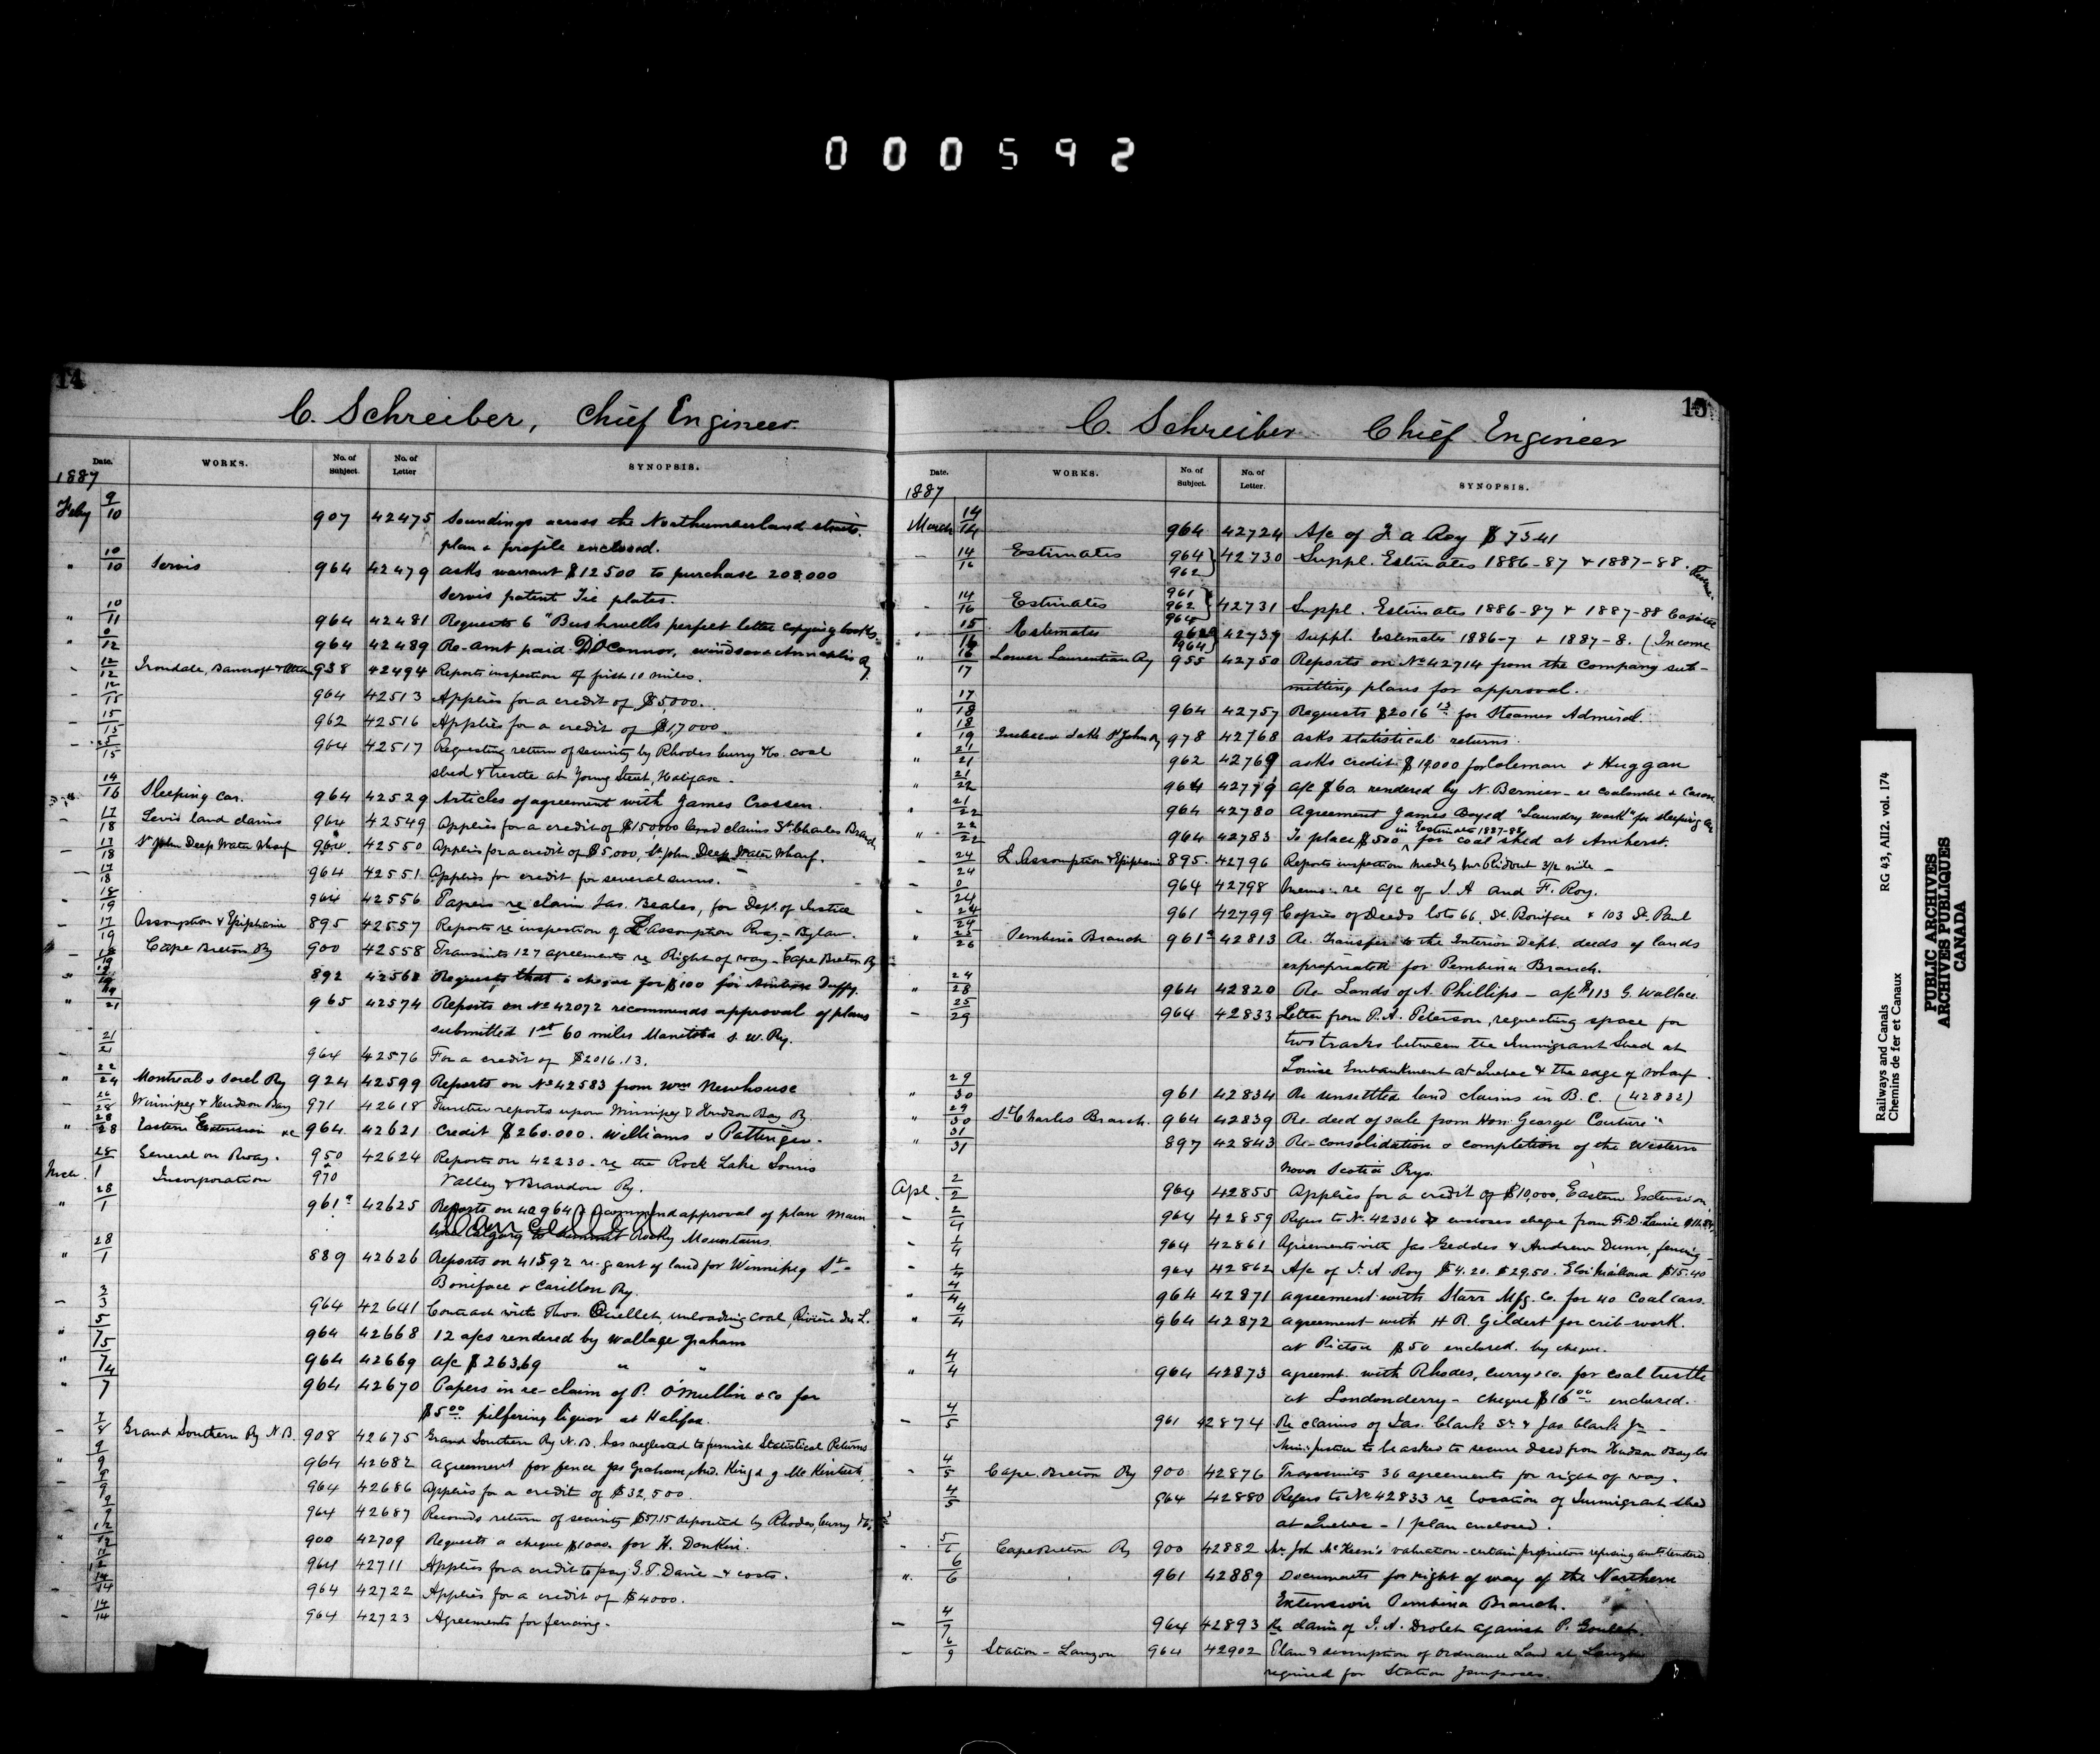 000592
14
C. Schreiber, Chief Engineer.
Date. WORKS. No. of Subject. No. of Letter SYNOPSIS.
1887
Feby 9/10 907 42475 Soundings across the Northumberland straits.
plan & profile enclosed.
" 10/10 Servis 964 42479 asks warrant $12500 to purchase 208.000
Servis patent Tie plates.
" 10/11 964 42481 Requests 6 "Bushnells perfect letter copying books.
" 0/12 964 42489 Re- amt paid D. O'Connor, Windsor & Annapolis Ry
- 12/12 Irondale, Bancroft & 938 42494 Reports inspection of first 10 miles.
- 12/15 964 42513 Applies for a credit of $5,000.
- 15/15 962 42516 Applies for a credit of $1,7000.
- 15/15 964 42517 Requesting return of security by Rhodes Curry & Co. coal
shed & trestle at Young Street, Halifax.
" 14/16 Sleeping Car. 964 42529 Articles of agreement with James Crossen.
- 17/18 Levis land claims 964 42549 Applies for a credit of $150000 land claims St Charles Branch
- 17/18 St John Deep Water Wharf 964. 42550 Applies for a credit of $5,000, St. John Deep Water Wharf.
- 17/18 964 42551 Applies for credit for several sums.
- 18/19 964 42556 Papers re claim Jas. Beales, for Dept. of Justice
- 17/19 Assomption & Epiphanie 895 42557 Reports re inspection of L'Assomption Rway - Bylaw
- 18/19 Cape Breton Ry 900 42558 Transmits 127 agreements re Right of way - Cape Breton Ry
" 892 42568 Requests that a cheque for $100 for Ambrose Duffy.
" 19/21 965 42574 Reports on No 42072 recommends approval of plans
submitted 1st 60 miles Manitoba S. W. Ry.
- 21/21 964 42576 For a credit of $2016.13.
" 22/24 Montreal & Sorel Ry 924 42599 Reports on No 42583 from Wm Newhouse
- 26/28 Winnipeg & Hudson Bay 971 42618 Further reports upon Winnipeg & Hudson Bay Ry.
" 28/28 Eastern Extension &c 964 42621 Credit $260.000. Williams & Pottinger.
28 General on Rway. 950 42624 Report on 42230 - re the Rock Lake Souris
Mch. 1 Incorporation & 970 Valley & Brandon Ry.
" 28/1 961a 42625 Reports on 40964 & recommend approval of plan Main
Cancelled
line Calgary to Summit Rocky Mountains
" 28/1 889 42626 Reports on 41592 re - grant of land for Winnipeg St.
Boniface & Carillon Ry.
- 2/3 964 42641 Contract with Thos. Ouellet, unloading coal, Rivière du L.
" 5/5 964 42668 12 a/cs rendered by Wallace Graham
" 964 42669 a/c $263.69 " "
" 964 42670 Papers in re - claim of P. O'Mullin & Co for
$5.00 pilfering liquor at Halifax.
- 7/8 Grand Southern Ry N.B. 908 42675 Grand Southern Ry N.B. has neglected to furnish Statistical Returns
" 9/9 964 42682 agreement for fence Jas Graham, And. King & J. McKintosh.
- 8/9 964 42686 Applies for a credit of $32,500.
- 9/9 964 42687 Records return of security $57.15 deposited by Rhodes, Curry & Co
" 12/12 900 42709 Requests a cheque $1000. for H. Donkin.
964 42711 Applies for a credit to pay G. T. Davie - & costs.
- 14/14 964 42722 Applies for a credit of $4000.
- 14/14 964 42723 Agreements for fencing.
15
C. Schreiber Chief Engineer
Date. WORKS. No. of Subject. No. of Letter. SYNOPSIS.
1887
March 14/14 964 42724 A/c of J. A Roy $75.41
- 14/16 Estimates 964 962 } 42730 Suppl. Estimates 1886-87 & 1887-88.
- 14/16 Estimates 961 962 964 } 42731 Suppl. Estimates 1886-87 & 1887-88 Capital
" 15/16 Estimates 962 964 } 42739 Suppl. Estimates 1886-7 & 1887-8. (Income
" 16/17 Lower Laurentian Ry 955 42750 Reports on No 42714 from the Company sub-
mitting plans for approval.
" 17/18 964 42757 Requests $2016 13 for Steamer Admiral.
" 18/19 Quebec & Lake St John Ry 978 42768 asks statistical returns.
" 21/21 962 42769 asks credit $19000 for Coleman & Huggan
" 21/22 964 42779 a/c $60. rendered by N. Bernier - re Coulombe & Caron
" 21/22 964 42780 Agreement James Boyed "Laundry work" for sleeping Car
" 22/22 964 42783 To place $500 in Estimates 1887-88 for coal shed at Amherst.
- 24/24 L'Assomption & Epiphanie 895. 42796 Reports inspection made by Mr Ridout 3 1/2 mile -
- 0/24 964 42798 Memo: re a/c of J. A and F. Roy.
- 24/24 961 42799 Copies of Deeds lots 66, St. Boniface & 103 St. Paul
" 25/26 Pembina Branch 961a 42813 Re. Transfer to the Interior Dept. deeds of lands
expropriated for Pembina Branch.
" 24/28 964 42820 Re - Lands of A. Phillips - a/c $113 G. Wallace.
- 25/29 964 42833 Letter from P. A. Peterson, requesting space for
two tracks between the Immigrant Shed at
Louise Embankment at Quebec & the edge of wharf.
" 29/30 961 42834 Re unsettled land claims in B.C. (42832)
" 29/30 St Charles Branch. 964 42839 Re. deed of sale from Hon: George Couture "
" 31/31 897 42843 Re - consolidation & completion of the Western
Nova Scotia Rys.
Apl. 2/2 964 42855 Applies for a credit of $10,000, Eastern Extension
- 2/4 964 42859 Refers to No. 42306 & encloses cheque from F. D. Laurie
- 1/4 964 42861 Agreements with Jas Geddes & Andrew Dunn, fencing -
- 1/4 964 42862 A/c of J. A. Roy $4.20. $29.50. $15.40
" 4/4 964 42871 agreement with Starr Mfg. Co. for 40 Coal cars.
" 4/4 964 42872 agreement with H R. Gildert for crib-work.
at Pictou $50 enclosed. by cheque.
" 4/4 964 42873 agreemt. with Rhodes, Curry & Co. for coal trestle
at Londonderry - cheque $16 00 enclosed.
- 4/5 961 42874 Re claims of Jas. Clark Sr. & Jas Clark Jr -
Min: Justice to be asked to secure deed from Hudson Bay Co
- 4/5 Cape Breton Ry 900 42876 Transmits 36 agreements for right of way.
4/5 964 42880 Refers to No 42833 re location of Immigrant shed
at Quebec - 1 plan enclosed.
- 5/6 Cape Breton Ry 900 42882 Mr. John McKeen's valuation - certain proprietors refusing amt. tendered
" 6/6 961 42889 Documents for right of way of the Northern
Extension Pembina Branch.
- 4/7 964 42893 Re claim of J. A. Drolet against P. Goulet.
- 6/9 Station - Lauzon 964 42902 Plan & description of Ordnance Land at Lauzon
required for Station purposes.
Railways and Canals
Chemins de fer et Canaux
RG 43, AII2. vol. 174
PUBLIC ARCHIVES
ARCHIVES PUBLIQUES
CANADA